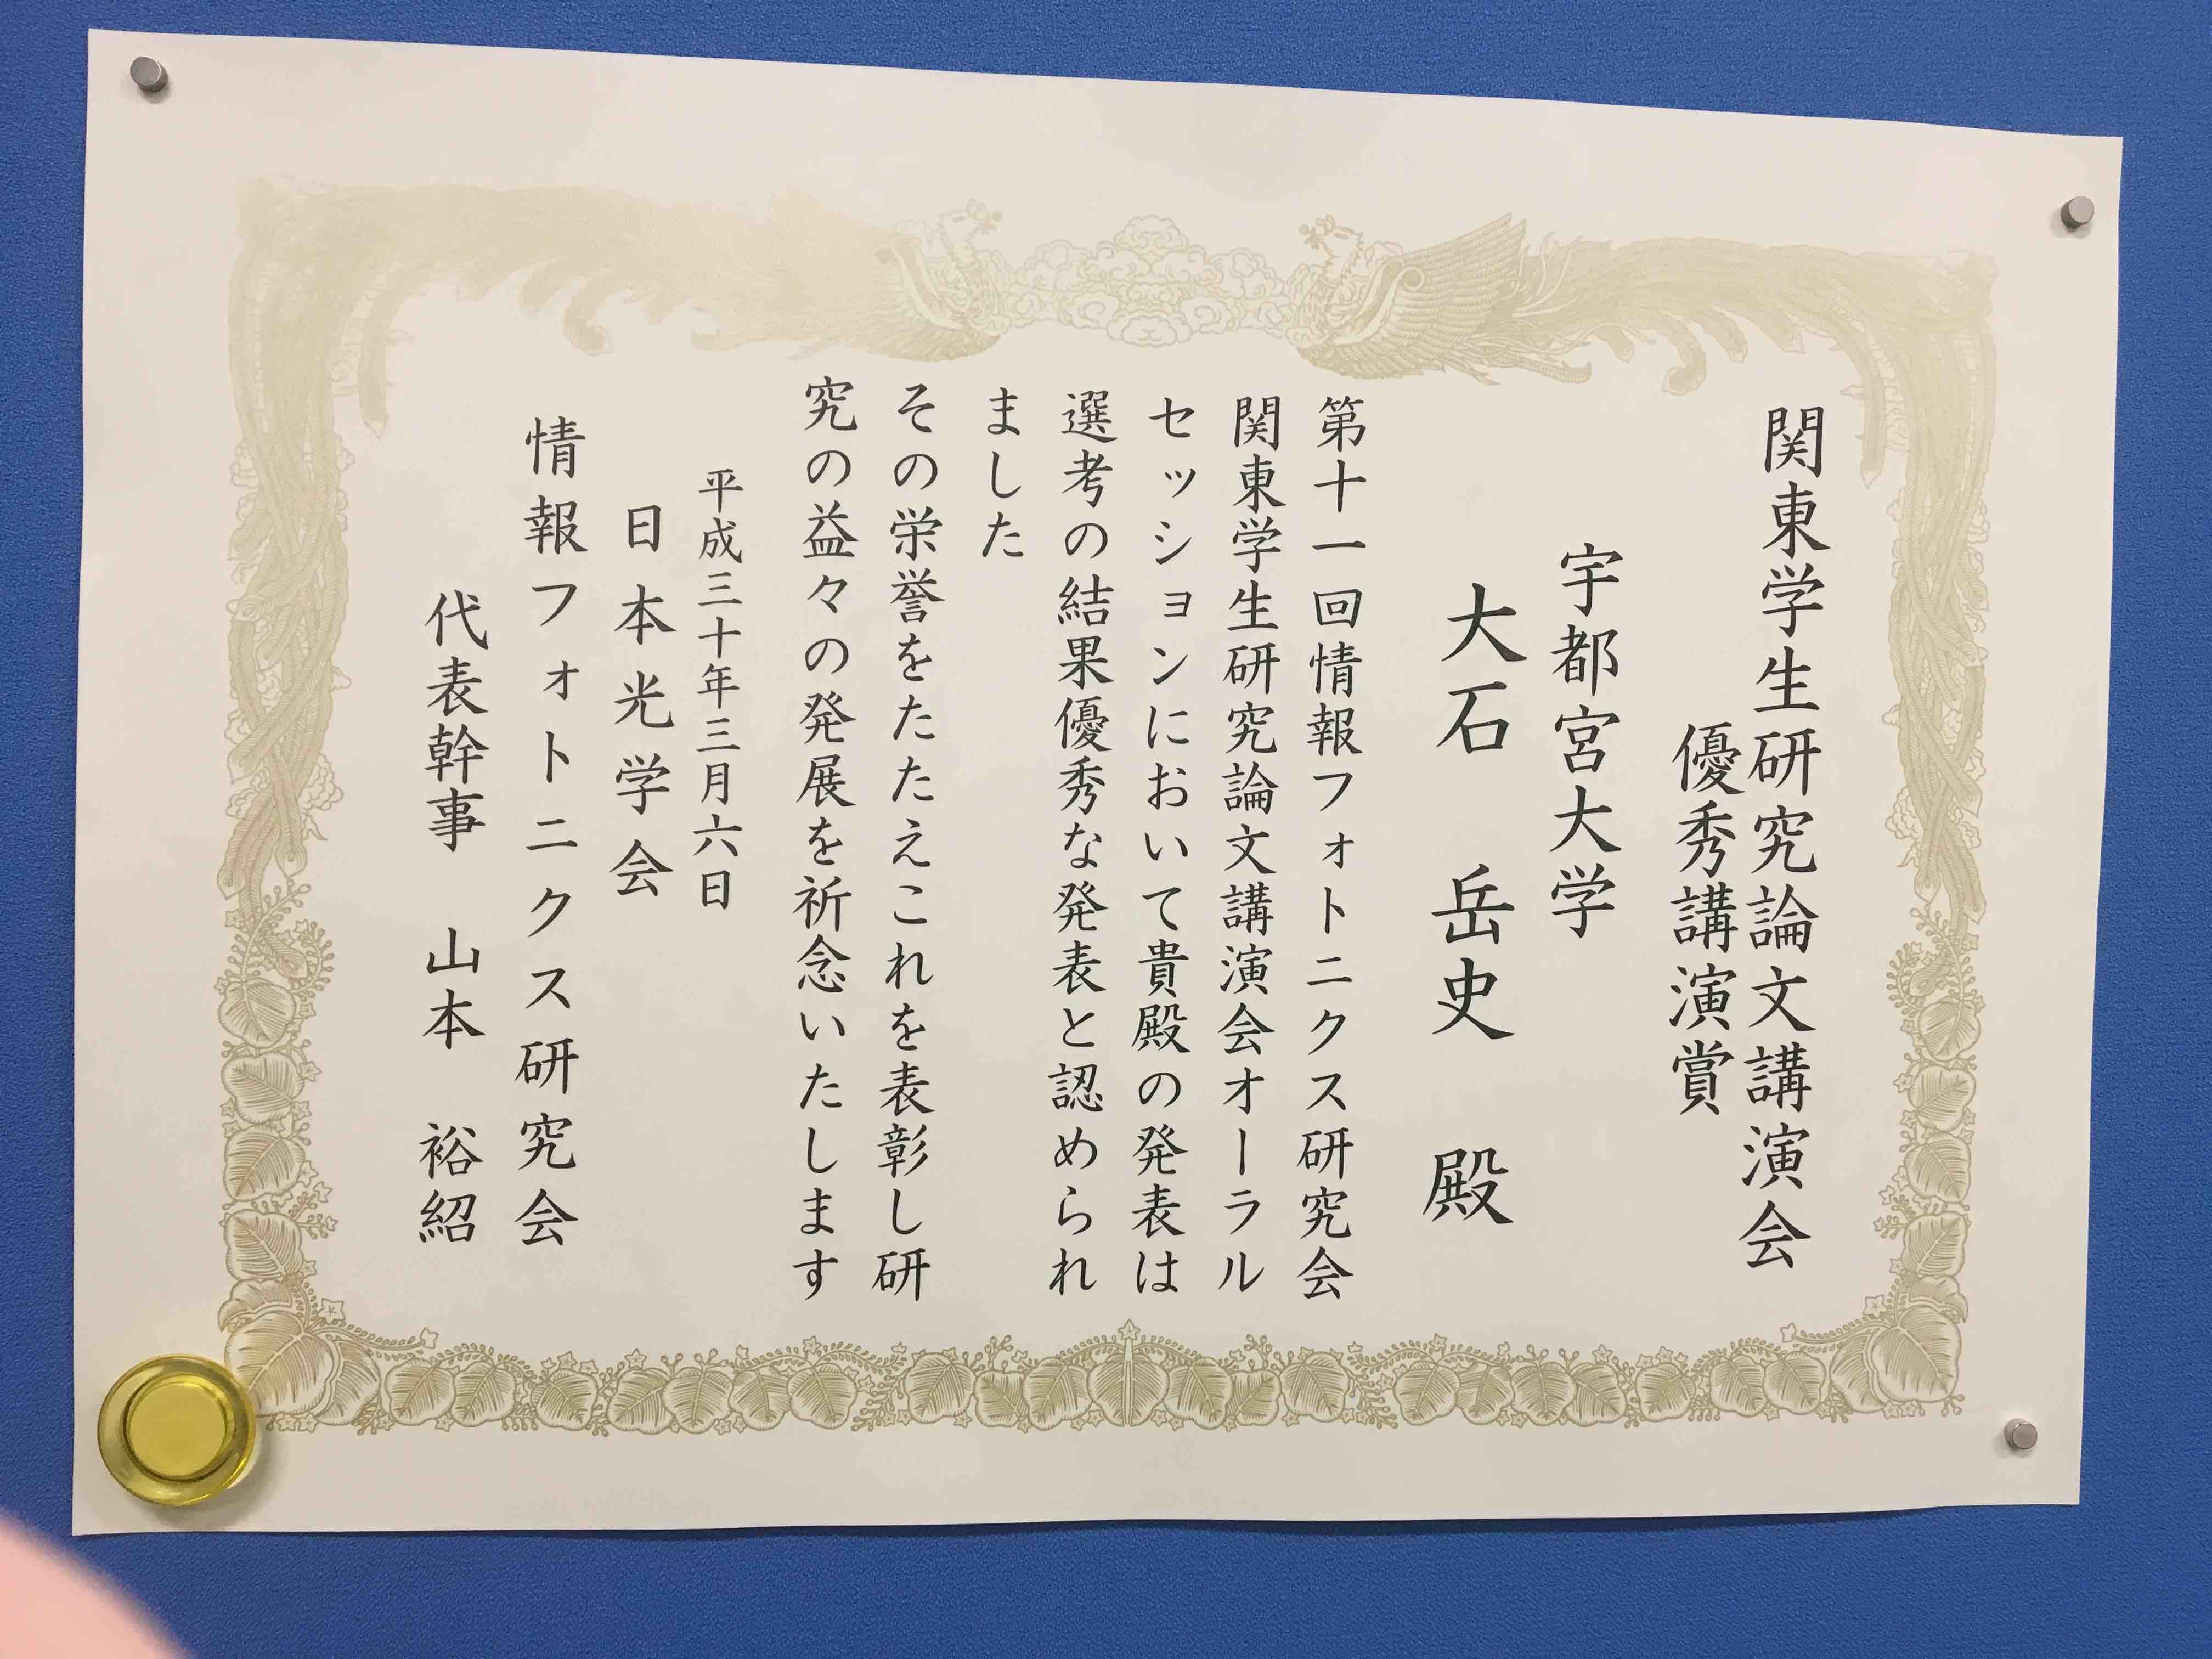 関東学生研究論文講演会
優秀講演賞
宇都宮大学
大石 岳史 殿
第十一回情報フォトニクス研究会
関東学生研究論文講演会オーラル
セッションにおいて貴殿の発表は
選考の結果優秀な発表と認められ
ました
その栄誉をたたえこれを表彰し研
究の益々の発展を祈念いたします
平成三十年三月六日
日本光学会
情報フォトニクス研究会
代表幹事 山本 裕紹